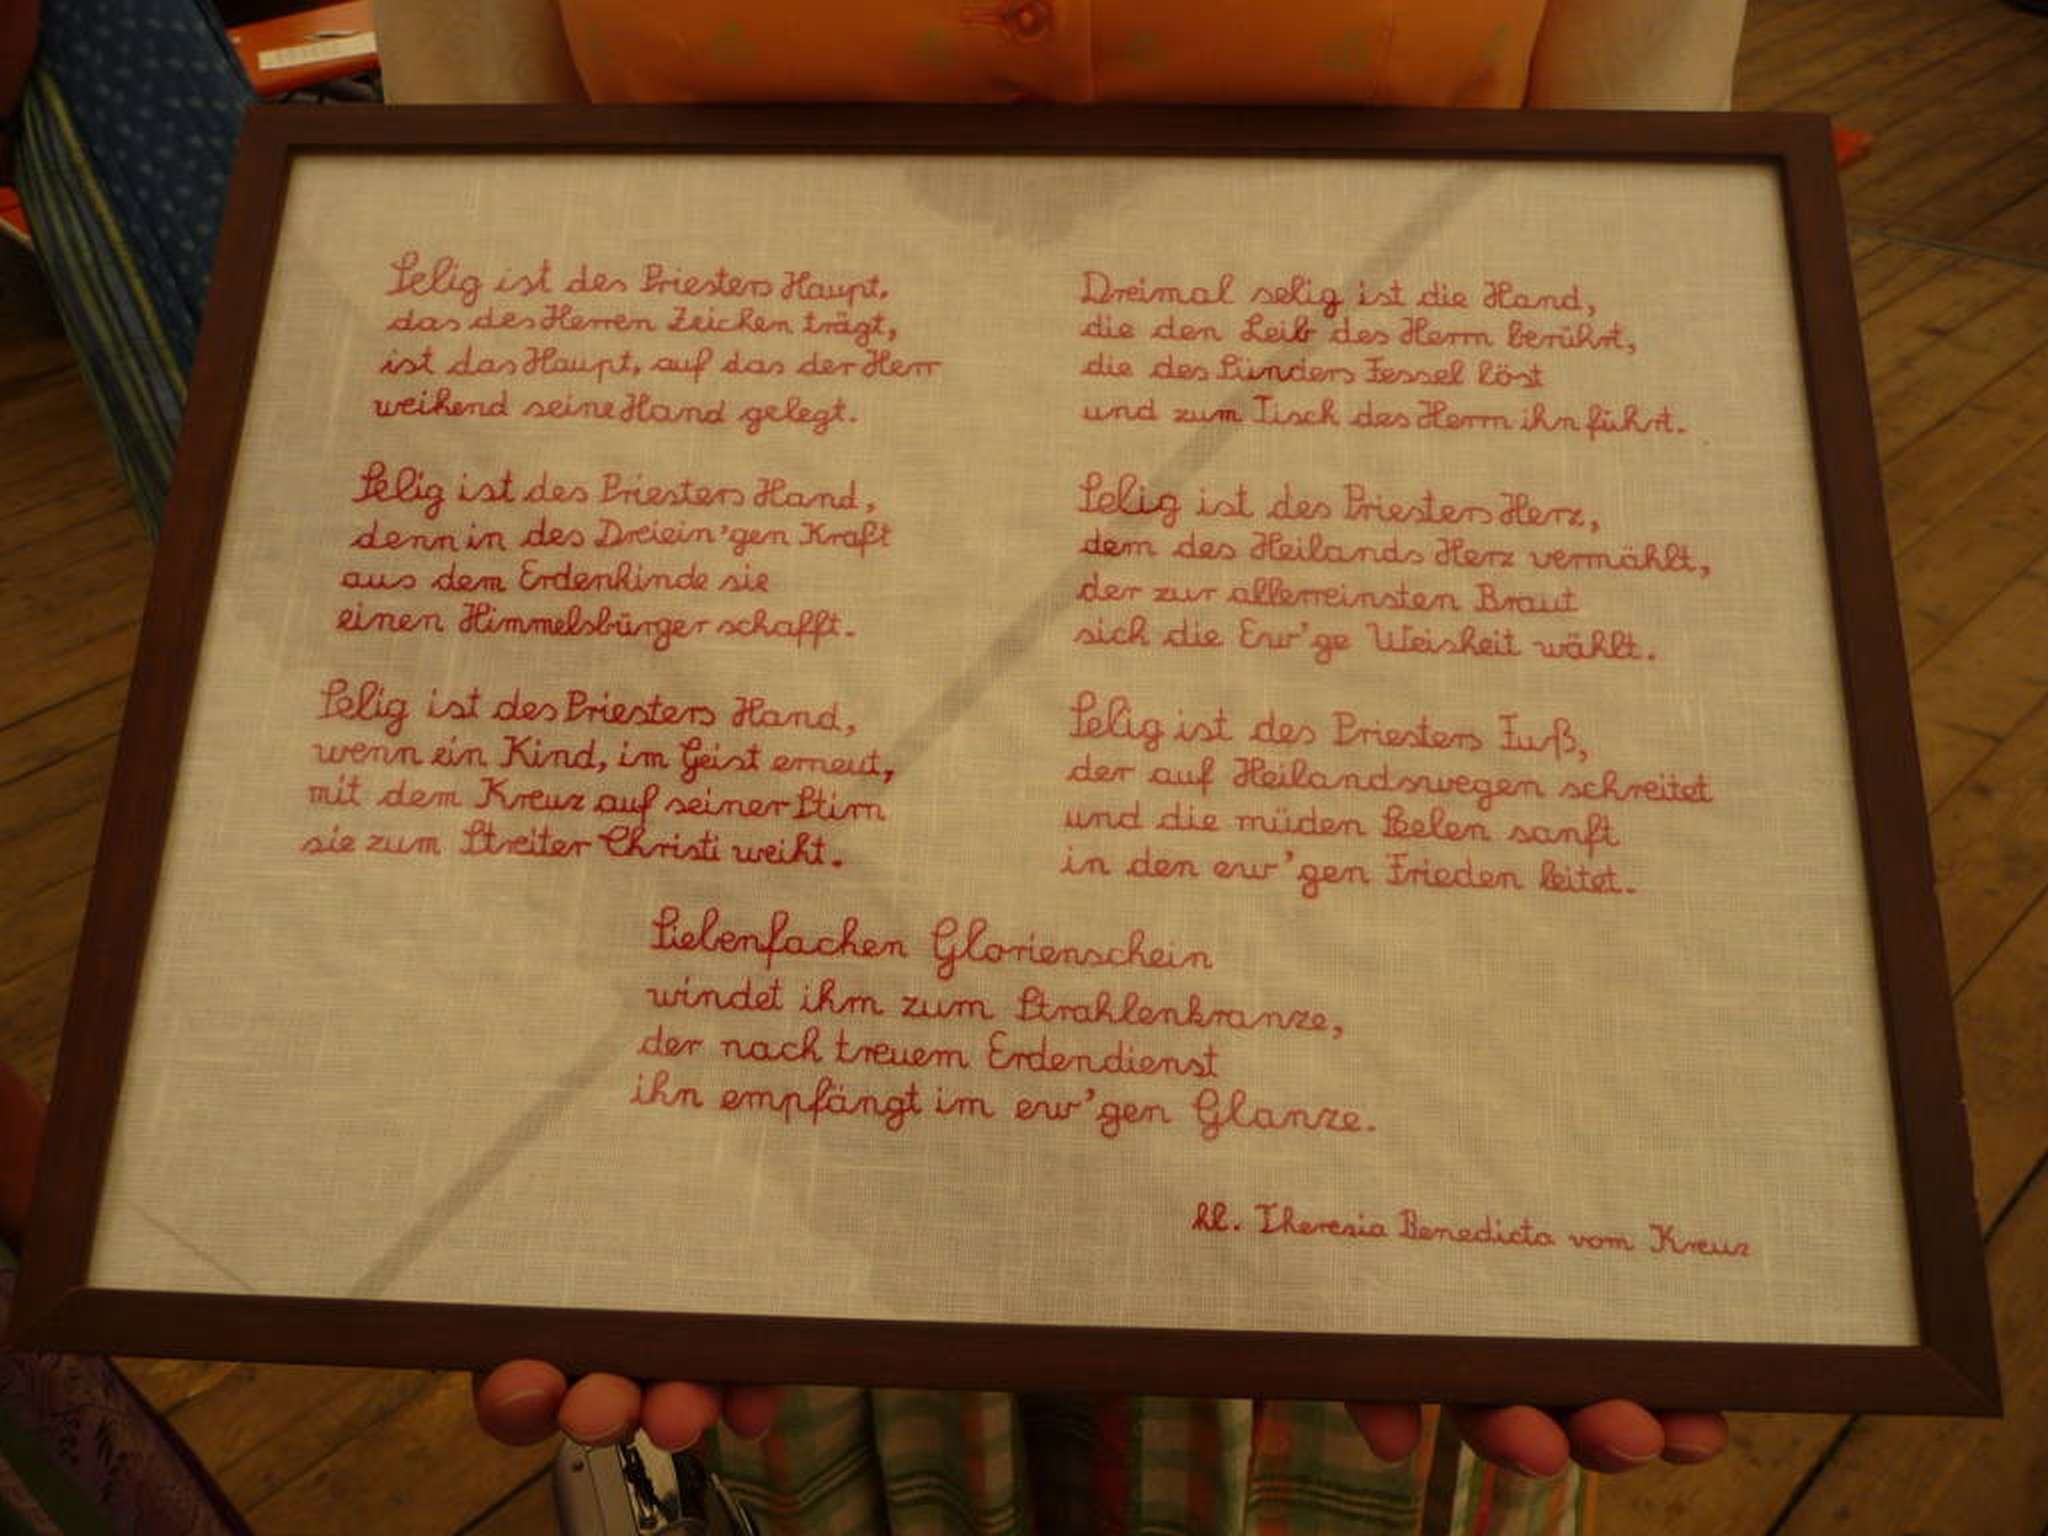 Selig ist des Priesters Haupt,
das des Herren Zeichen trägt,
ist das Haupt, auf das der Herr
weihend seine Hand gelegt.
Selig ist des Priesters Hand,
denn in des Dreiein'gen Kraft
aus dem Erdenkinde sie
einen Himmelsbürger schafft.
Selig ist des Priesters Hand,
wenn ein Kind, im Geist erneut,
mit dem Kreuz auf seiner Stirn
sie zum Streiter Christi weiht.
Dreimal selig ist die Hand,
die den Leib des Herrn berührt,
die des Sünders Fessel löst
und zum Tisch des Herrn ihn führt.
Selig ist des Priesters Herz,
dem des Heilands Herz vermählt,
der zur allerreinsten Braut
sich die Ew'ge Weisheit wählt.
Selig ist des Priesters Fuß,
der auf Heilandswegen schreitet
und die müden Seelen sanft
in den ew'gen Frieden leitet.
Siebenfachen Glorienschein
windet ihm zum Strahlenkranze,
der nach treuem Erdendienst
ihn empfängt im ew'gen Glanze.
hl. Theresia Benedicta vom Kreuz